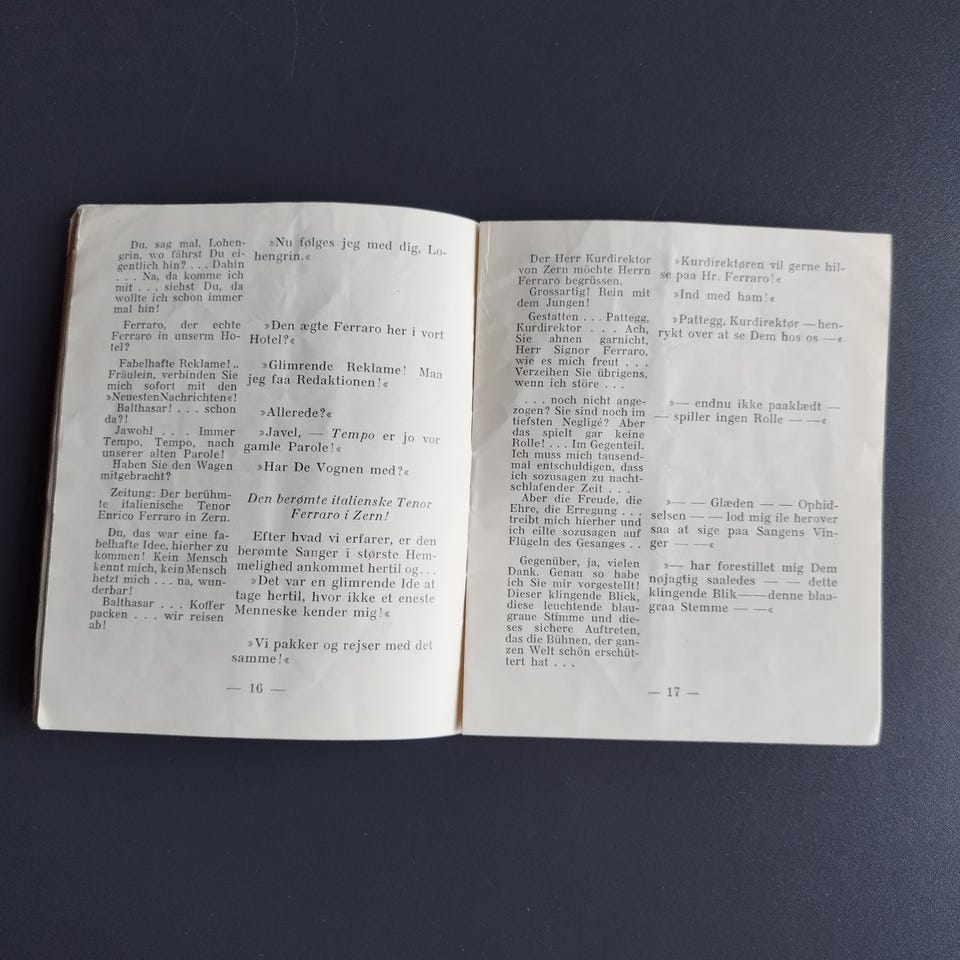 Du, sag mal, Lohen-
grin, wo fährst Du ei-
gentlich hin? . . . Dahin
. . . Na, da komme ich
mit . . . siehst Du, da
wollte ich schon immer
mal hin!
Ferraro, der echte
Ferraro in unserm Ho-
tel?
Fabelhafte Reklame! ..
Fräulein, verbinden Sie
mich sofort mit den
»Neuesten Nachrichten«!
Balthasar! . . . schon
da?!
Jawohl . . . Immer
Tempo, Tempo, nach
unserer alten Parole!
Haben Sie den Wagen
mitgebracht?
Zeitung: Der berühm-
te italienische Tenor
Enrico Ferraro in Zern.
Du, das war eine fa-
belhafte Idee, hierher zu
kommen! Kein Mensch
kennt mich, kein Mensch
hetzt mich . . . na, wun-
derbar!
Balthasar . . . Koffer
packen . . . wir reisen
ab!
»Nu følges jeg med dig, Lo-
hengrin.«
»Den ægte Ferraro her i vort
Hotel?«
»Glimrende Reklame! Maa
jeg faa Redaktionen!«
»Allerede?«
»Javel, — Tempo er jo vor
gamle Parole!«
»Har De Vognen med?«
Den berømte italienske Tenor
Ferraro i Zern!
Efter hvad vi erfarer, er den
berømte Sanger i største Hem-
melighed ankommet hertil og...
»Det var en glimrende Ide at
tage hertil, hvor ikke et eneste
Menneske kender mig!«
»Vi pakker og rejser med det
samme!«
— 16 —
Der Herr Kurdirektor
von Zern möchte Herrn
Ferraro begrüssen.
Grossartig! Rein mit
dem Jungen!
Gestatten . . . Pattegg,
Kurdirektor . . . . Ach,
Sie ahnen garnicht,
Herr Signor Ferraro,
wie es mich freut . . .
Verzeihen Sie übrigens,
wenn ich störe . . .
. . . noch nicht ange-
zogen? Sie sind noch im
tiefsten Negligé? Aber
das spielt gar keine
Rolle! . . . Im Gegenteil.
Ich muss mich tausend-
mal entschuldigen, dass
ich sozusagen zu nacht-
schlafender Zeit . . .
Aber die Freude, die
Ehre, die Erregung . . .
treibt mich hierher und
ich eilte sozusagen auf
Flügeln des Gesanges . .
Gegenüber, ja, vielen
Dank. Genau so habe
ich Sie mir vorgestellt!
Dieser klingende Blick,
diese leuchtende blau-
graue Stimme und die-
ses sichere Auftreten,
das die Bühnen, der gan-
zen Welt schön erschüt-
tert hat . . .
»Kurdirektøren vil gerne hil-
se paa Hr. Ferraro!«
»Ind med ham!«
»Pattegg, Kurdirektør — hen-
rykt over at se Dem hos os —«
»— endnu ikke paaklædt —
— spiller ingen Rolle — —«
»— — Glæden — — Ophid-
selsen — — lod mig ile herover
saa at sige paa Sangens Vin-
ger — —«
»— har forestillet mig Dem
nøjagtig saaledes — — dette
klingende Blik——denne blaa-
graa Stemme — —«
— 17 —